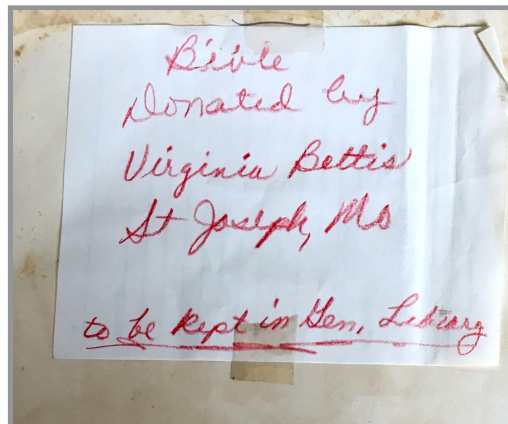 Bible
Donated by
Virginia Bettis
St Joseph, Mo
to be kept in Gen, Library